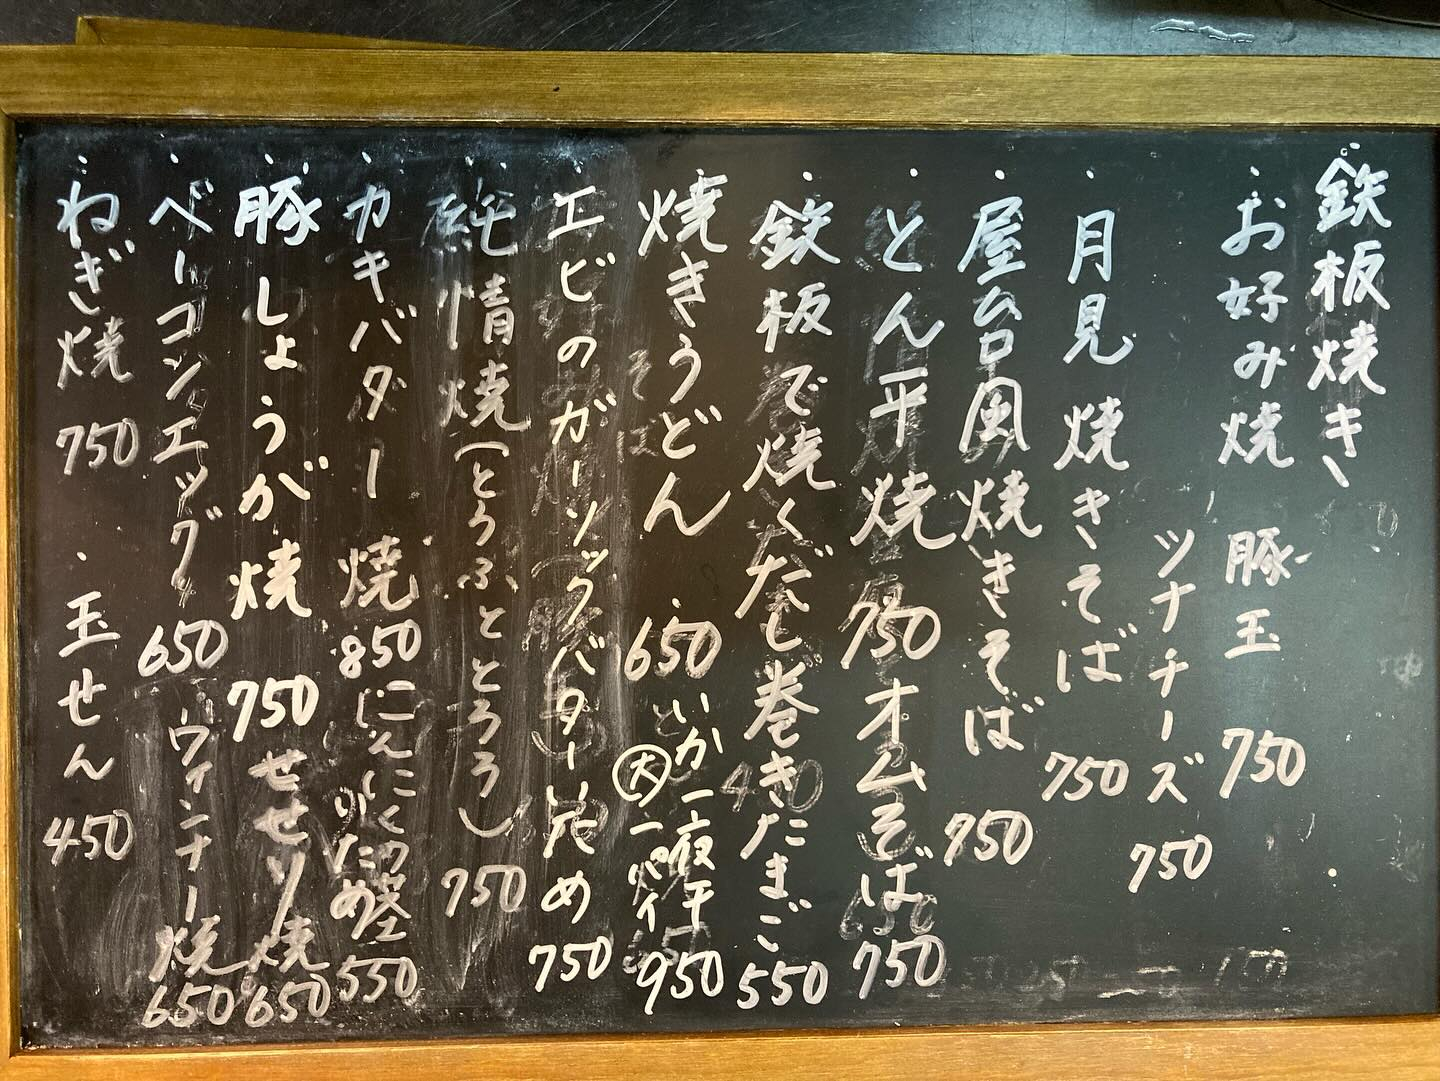 鉄板焼き
・お好み焼 豚玉 750
ツナチーズ 750
・月見焼きそば 750
・屋台風焼きそば 750
・とん平焼 750
オムそば 750
・鉄板で焼くだし巻きたまご 550
・焼きうどん 650
・いか一夜干
大 一パイ 950
・エビのガーリックバターいため 750
・純情焼(とうふととろろ) 750
・カキバター焼 850
にんにく
いため 550
・豚しょうが焼 750
せせり焼 650
・ベーコンエッグ 650
ウィンナー焼 650
・ねぎ焼 750
・玉せん 450